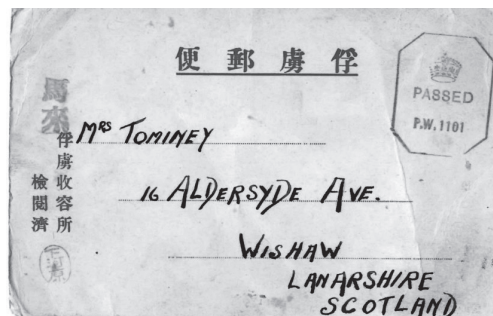 俘虜郵便
PASSED
P.W. 1101
馬來
俘虜收容所
檢閲濟
MRS TOMINEY
16 ALDERSYDE AVE.
WISHAW
LANARSHIRE
SCOTLAND